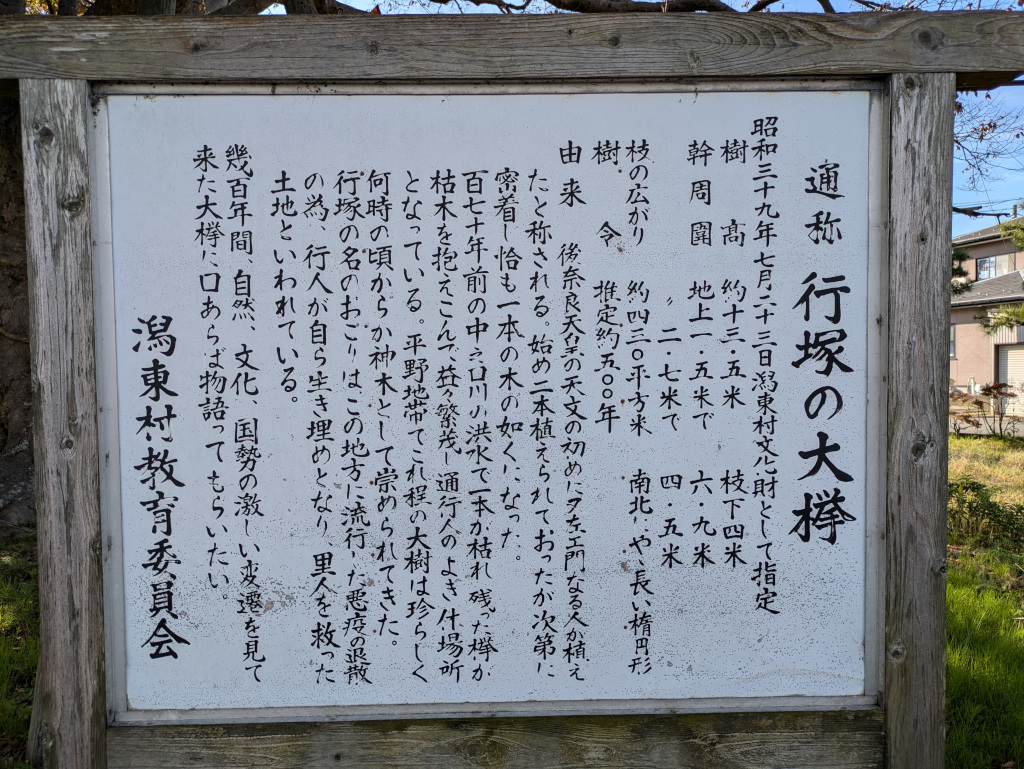 通称 行塚の大欅
昭和三十九年七月二十三日潟東村文化財として指定
樹高 約十三・五米 枝下四米
幹周囲 地上一・五米で 六・九米
〃 二・七米で 四・五米
枝の広がり 約四三〇平方米 南北にやや長い楕円形
樹令 推定約五〇〇年
由来 後奈良天皇の天文の初めに夕左エ門なる人が植え
たと称される。始め二本植えられておったが次第に
密着し恰も一本の木の如くになった。
百七十年前の中之口川の洪水で一本が枯れ残った欅が
枯木を抱えこんで益々繁茂し通行人のよき休場所
となっている。平野地帯でこれ程の大樹は珍らしく
何時の頃からか神木として崇められてきた。
行塚の名のおこりはこの地方に流行した悪疫の退散
の為、行人が自ら生き埋めとなり、里人を救った
土地といわれている。
幾百年間、自然、文化、国勢の激しい変遷を見て
来た大欅に口あらば物語ってもらいたい。
潟東村教育委員会